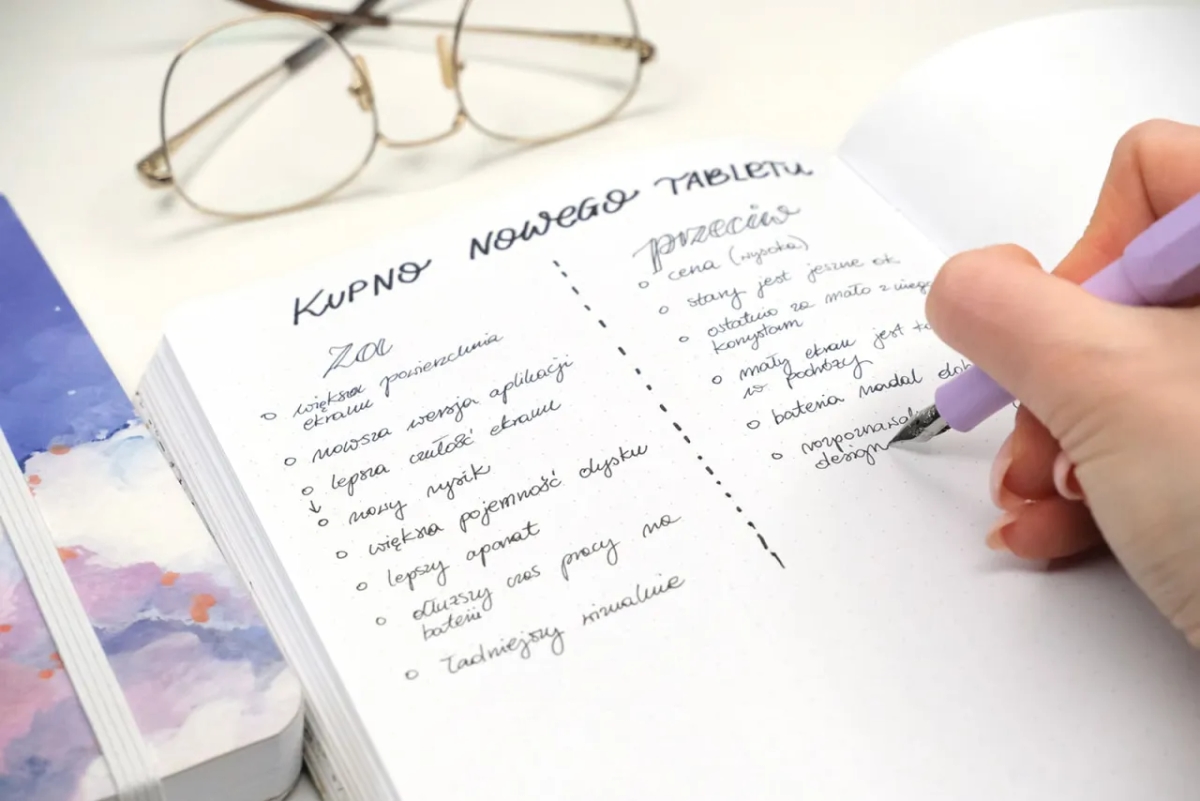 KUPNO NOWEGO TABLETU
za
większa powierzchnia
ekranu
nowsza wersja aplikacji
lepsza czułość ekranu
nowy rysik
większa pojemność dysku
lepszy aparat
dłuższy czas pracy na
baterii
ładniejszy wizualnie
przeciw
cena (wysoka)
stary jest jeszcze ok
ostatnio za mało z niego
korzystam
mały ekran jest
w podróży
bateria nadal
design